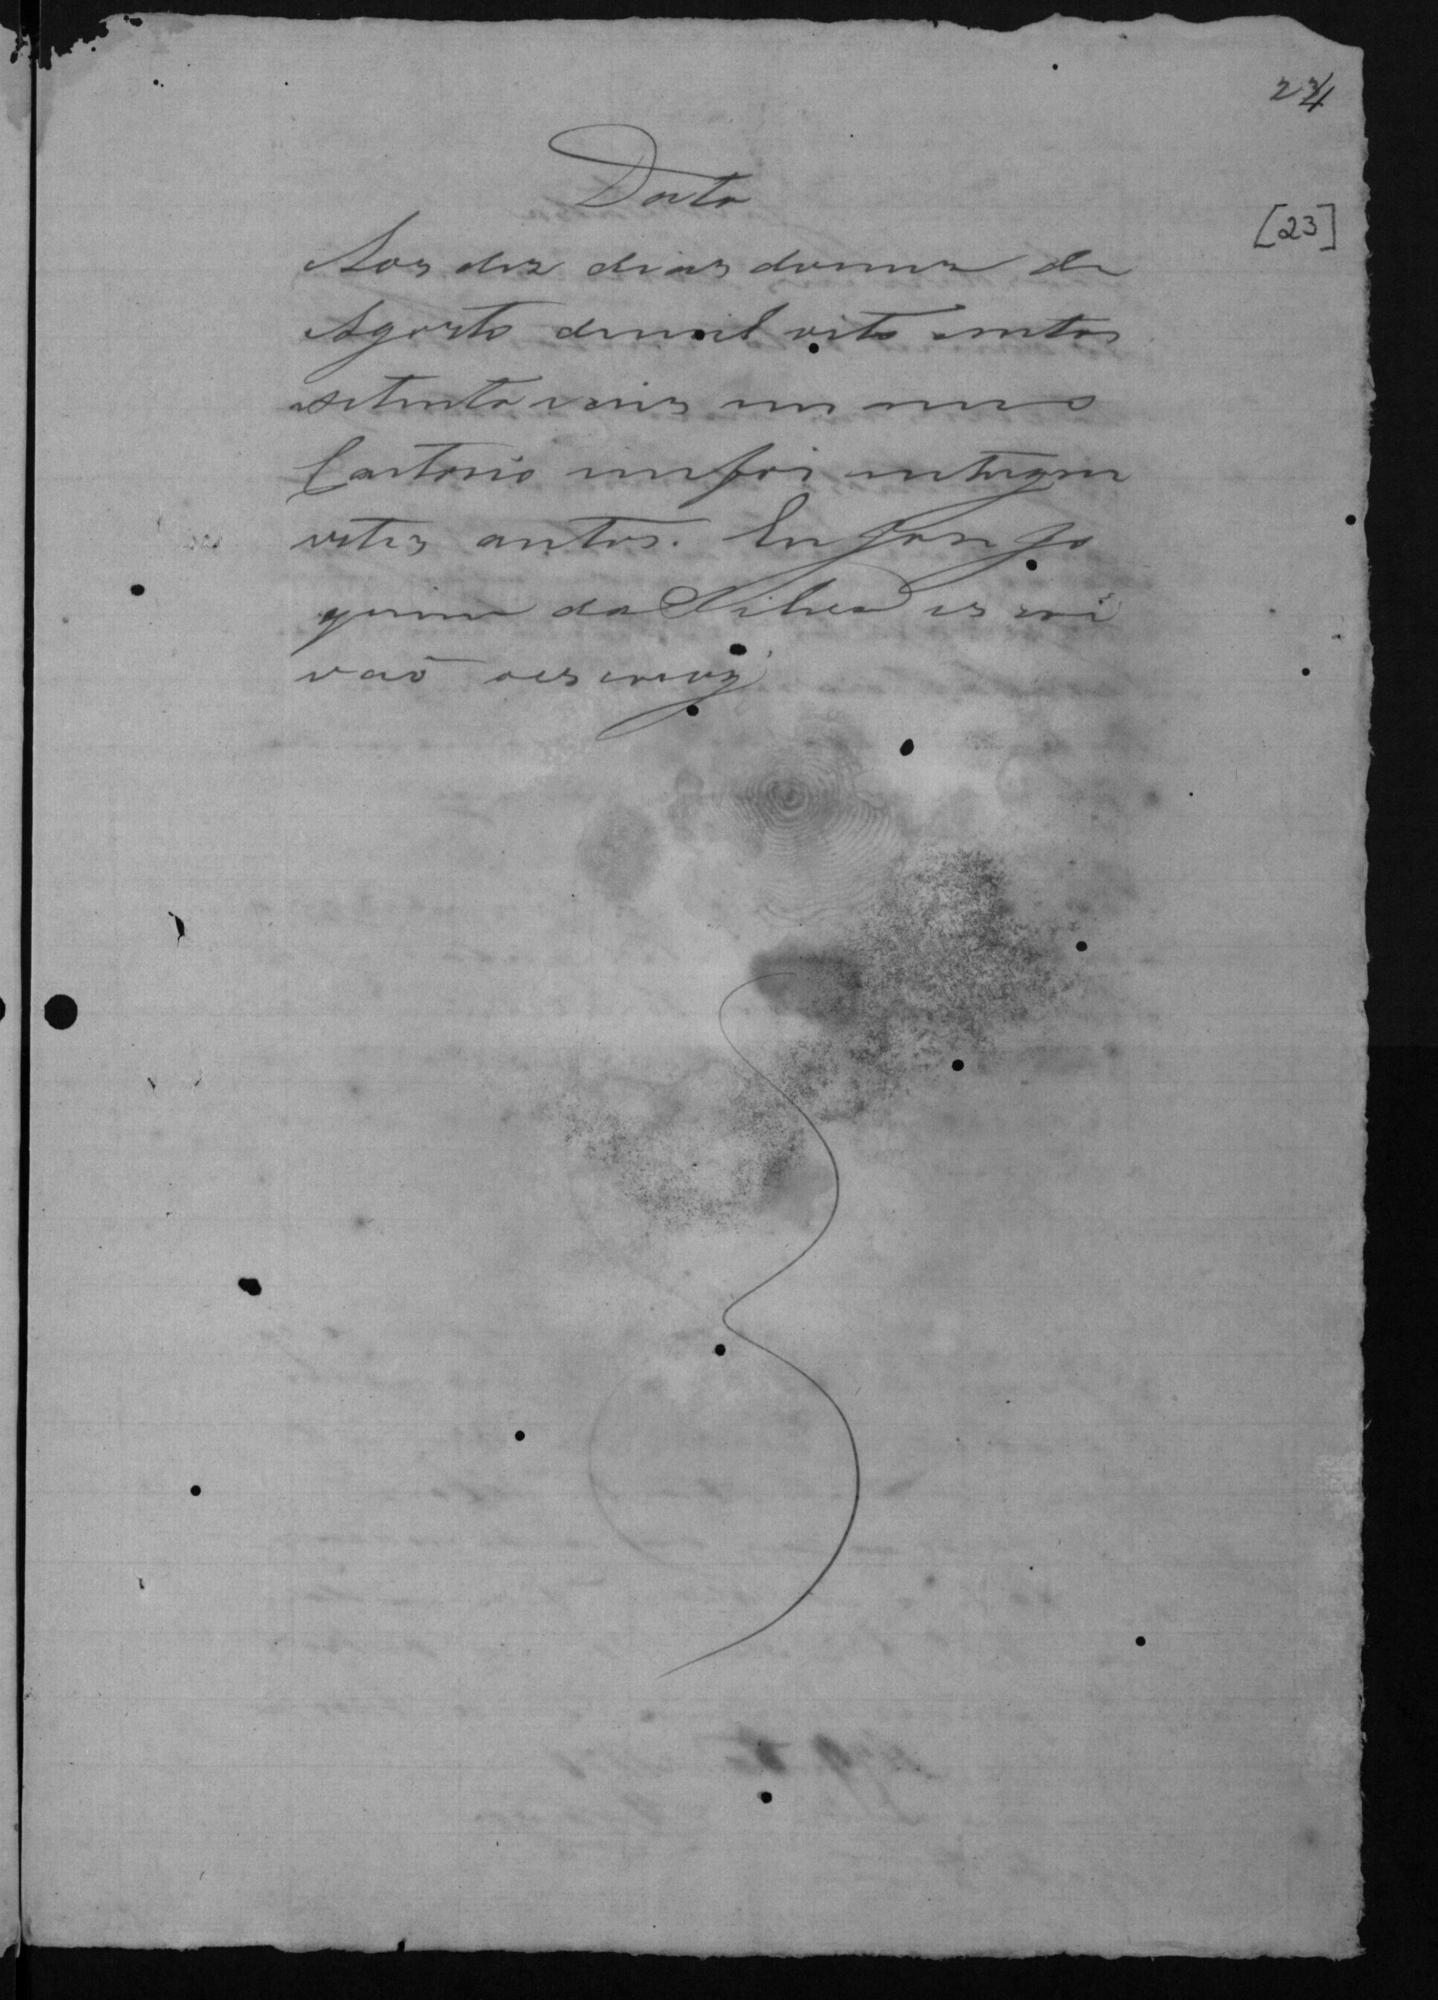 24
[23]
Data
Aos dez dias do mez de
Agosto de mil oito centos
setenta e seis em meu
Cartorio me foi entregue
estes autos. Eu José Joa
quim da Silva escri
vão o escrevy